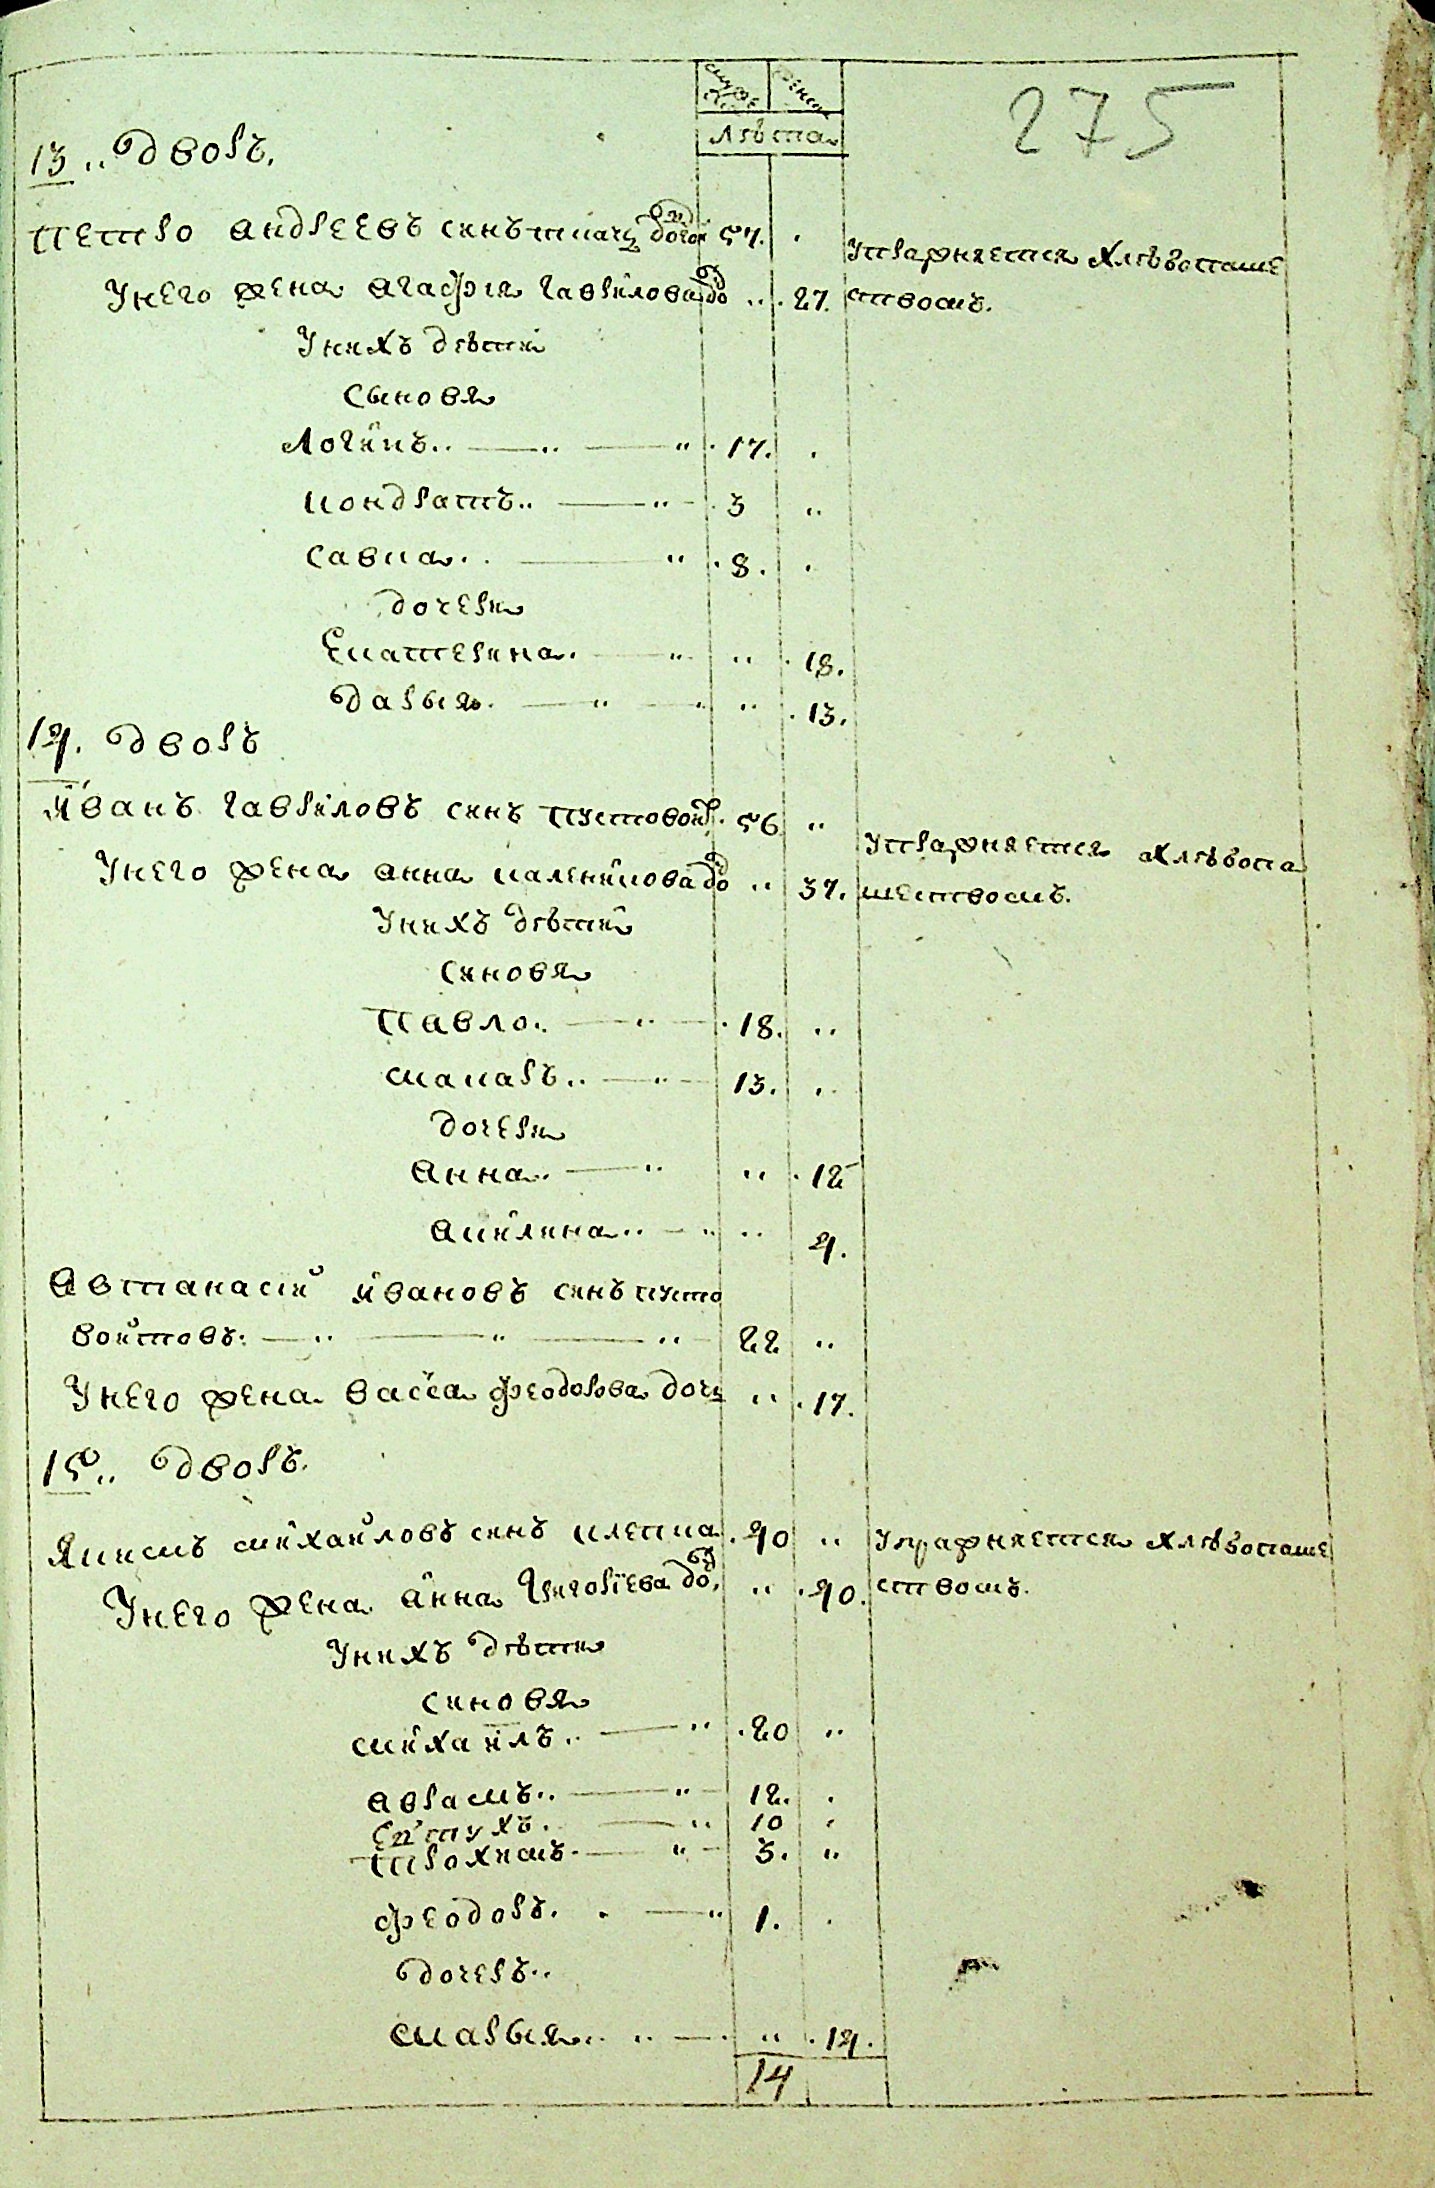 275
мужс женск
лѣта
13.. дворъ.
петро андреевъ синъ 57.
упражняется хлѣбопаше
ствомъ.
Унего жена агафия гаврилова до .. 27.
Унихъ дѣти
Сыновя
Логинъ.. 17.
кондратъ.. 3 ..
савка.. 8.
дочери
Екатерина. .. 18.
дарыя. .. 13.
14. дворъ
иванъ гавриловъ синъ пустовойт. 56 ..
упражняется хлѣбопа
шествомъ.
Унего жена анна каленикова до .. 37.
Унихъ дѣтий
синовя
Павло.. 18. ..
макаръ.. 13.
дочери
анна.. .. 12
акилина.. .. 4.
автанасий ивановъ синъ пусто
войтовъ: 22 ..
Унего жена васса феодорова дочь .. 17.
15.. дворъ.
якимъ михайловъ синъ клепка. 40 ..
упражняется хлѣбопаше
ствомъ.
Унего жена анна григориева до. .. 40.
Унихъ дѣти
синовя
михаилъ.. 20 ..
аврамъ.. 12.
Евтухъ. 10
трохимъ. 3. ..
феодоръ. 1.
дочеръ..
марыя.. .. 14.
14